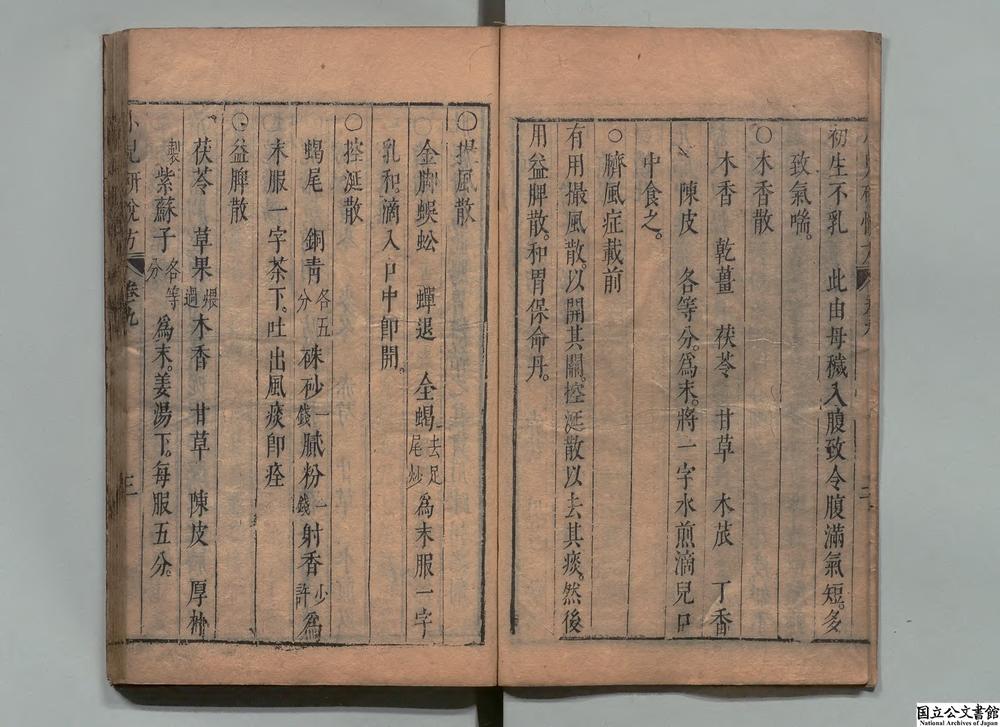 初生不乳　此由母穢入腹致令腹滿氣短。多
致氣喘。
○木香散
木香　乾薑　茯苓　甘草　木茋　丁香
陳皮　各等分。爲末。將一字水煎滴兒口
中食之。
○臍風症載前
有用撮風散。以開其關。控涎散以去其痰。然後
用益脾散。和胃保命丹。
○撮風散
金脚蜈蚣　蟬退　全蝎去足尾炒爲末服一字
乳和。滴入口中卽開。
○控涎散
蝎尾　銅靑各五分硃砂一錢膩粉一錢射香少許爲
末服一字茶下。吐出風痰卽痊
○益脾散
茯苓　草果煨過木香　甘草　陳皮　厚朴
製紫蘇子各等分爲末。姜湯下。每服五分。
小兒研悅方　卷九　三
国立公文書館
National Archives of Japan